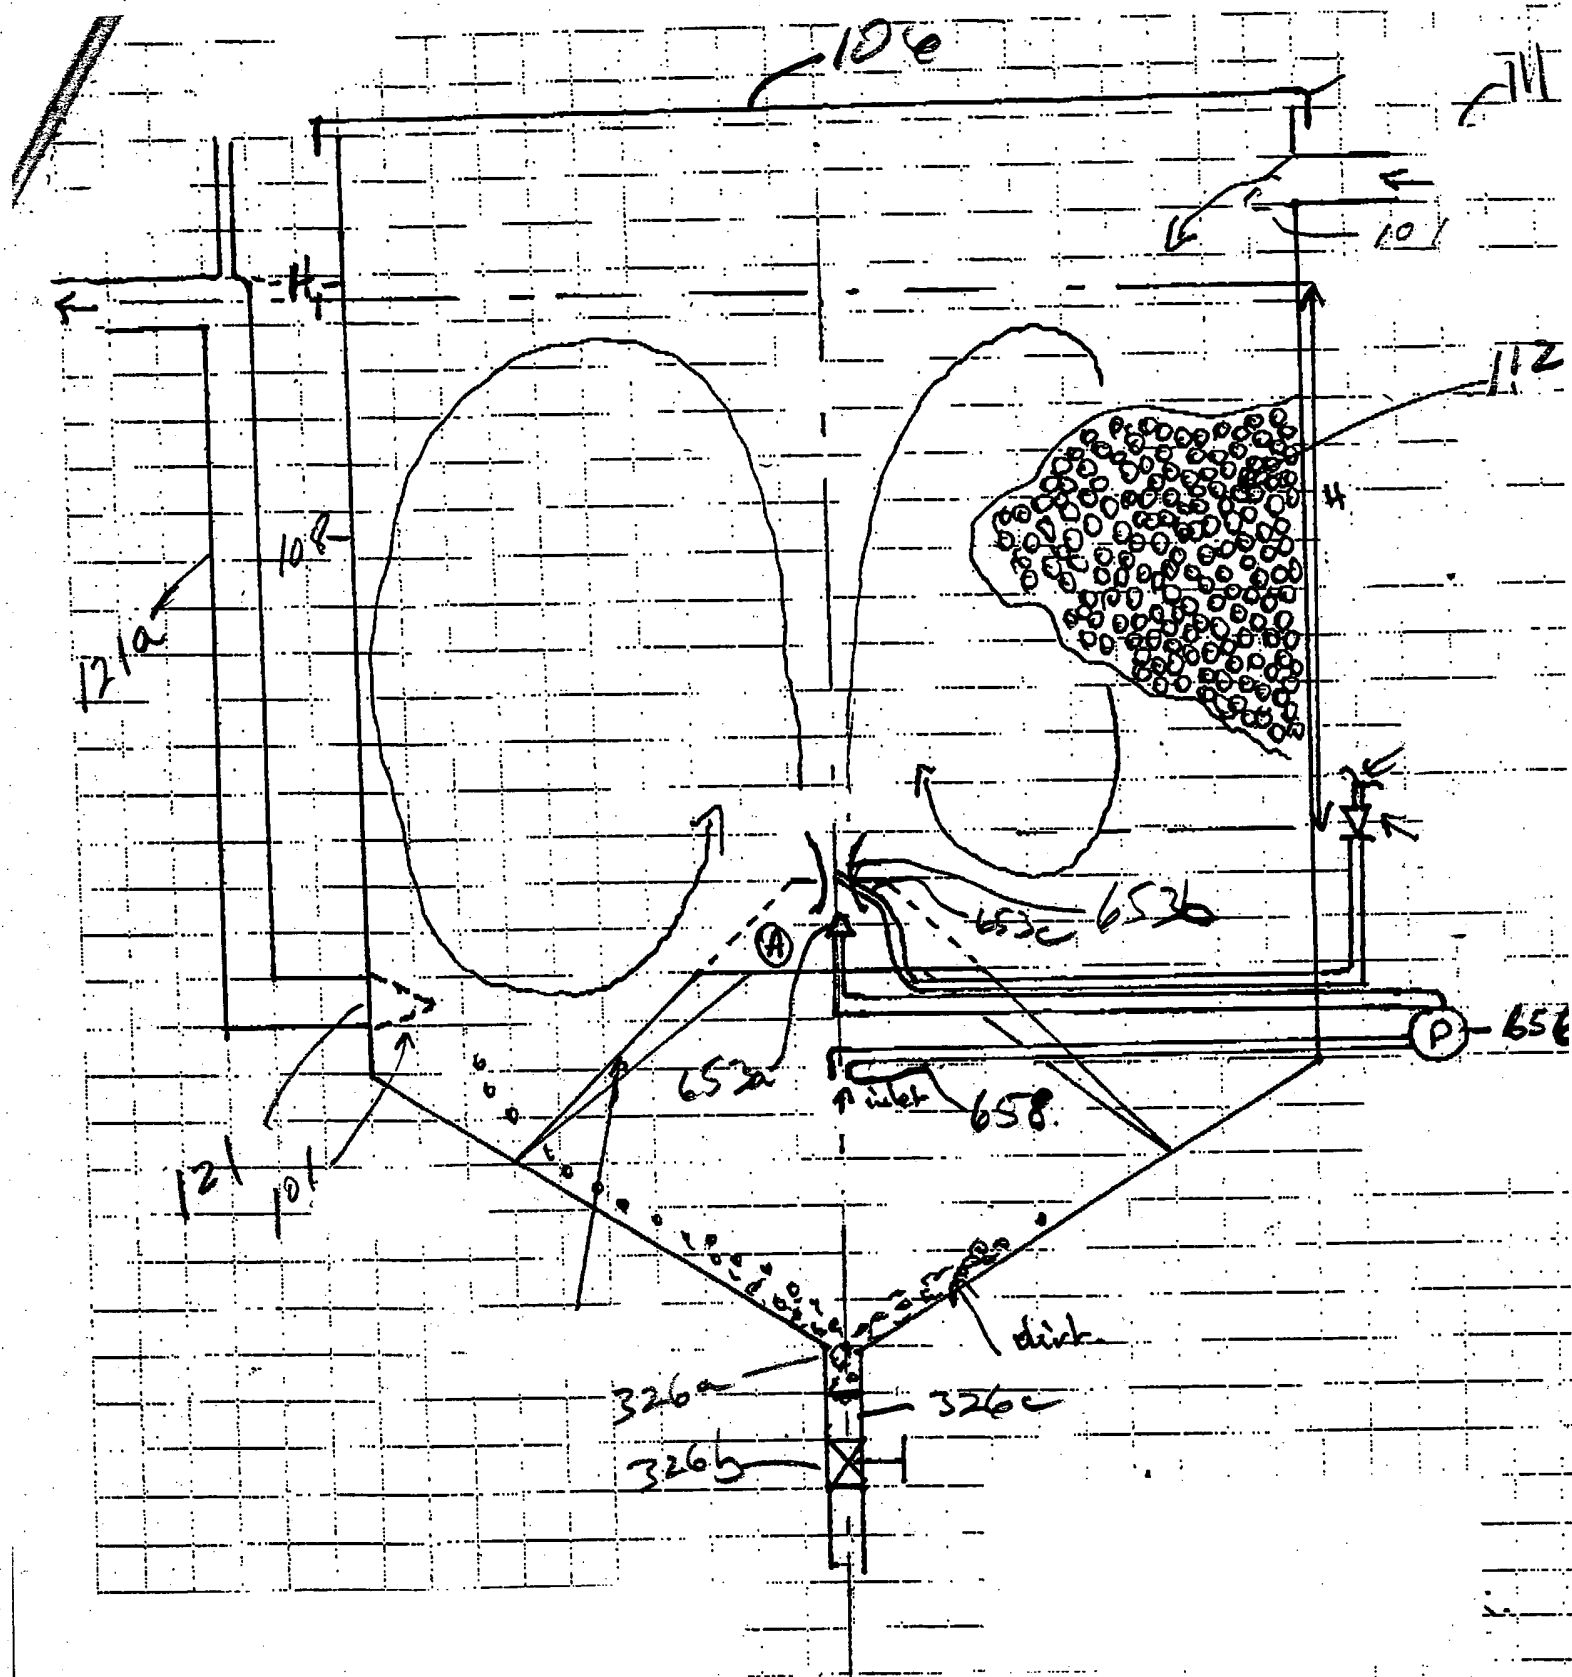 106
111
101
H1
112
H
108
121a
653c
653b
A
653a
P
656
inlet
658.
121
101
dirt
326a
326c
326b